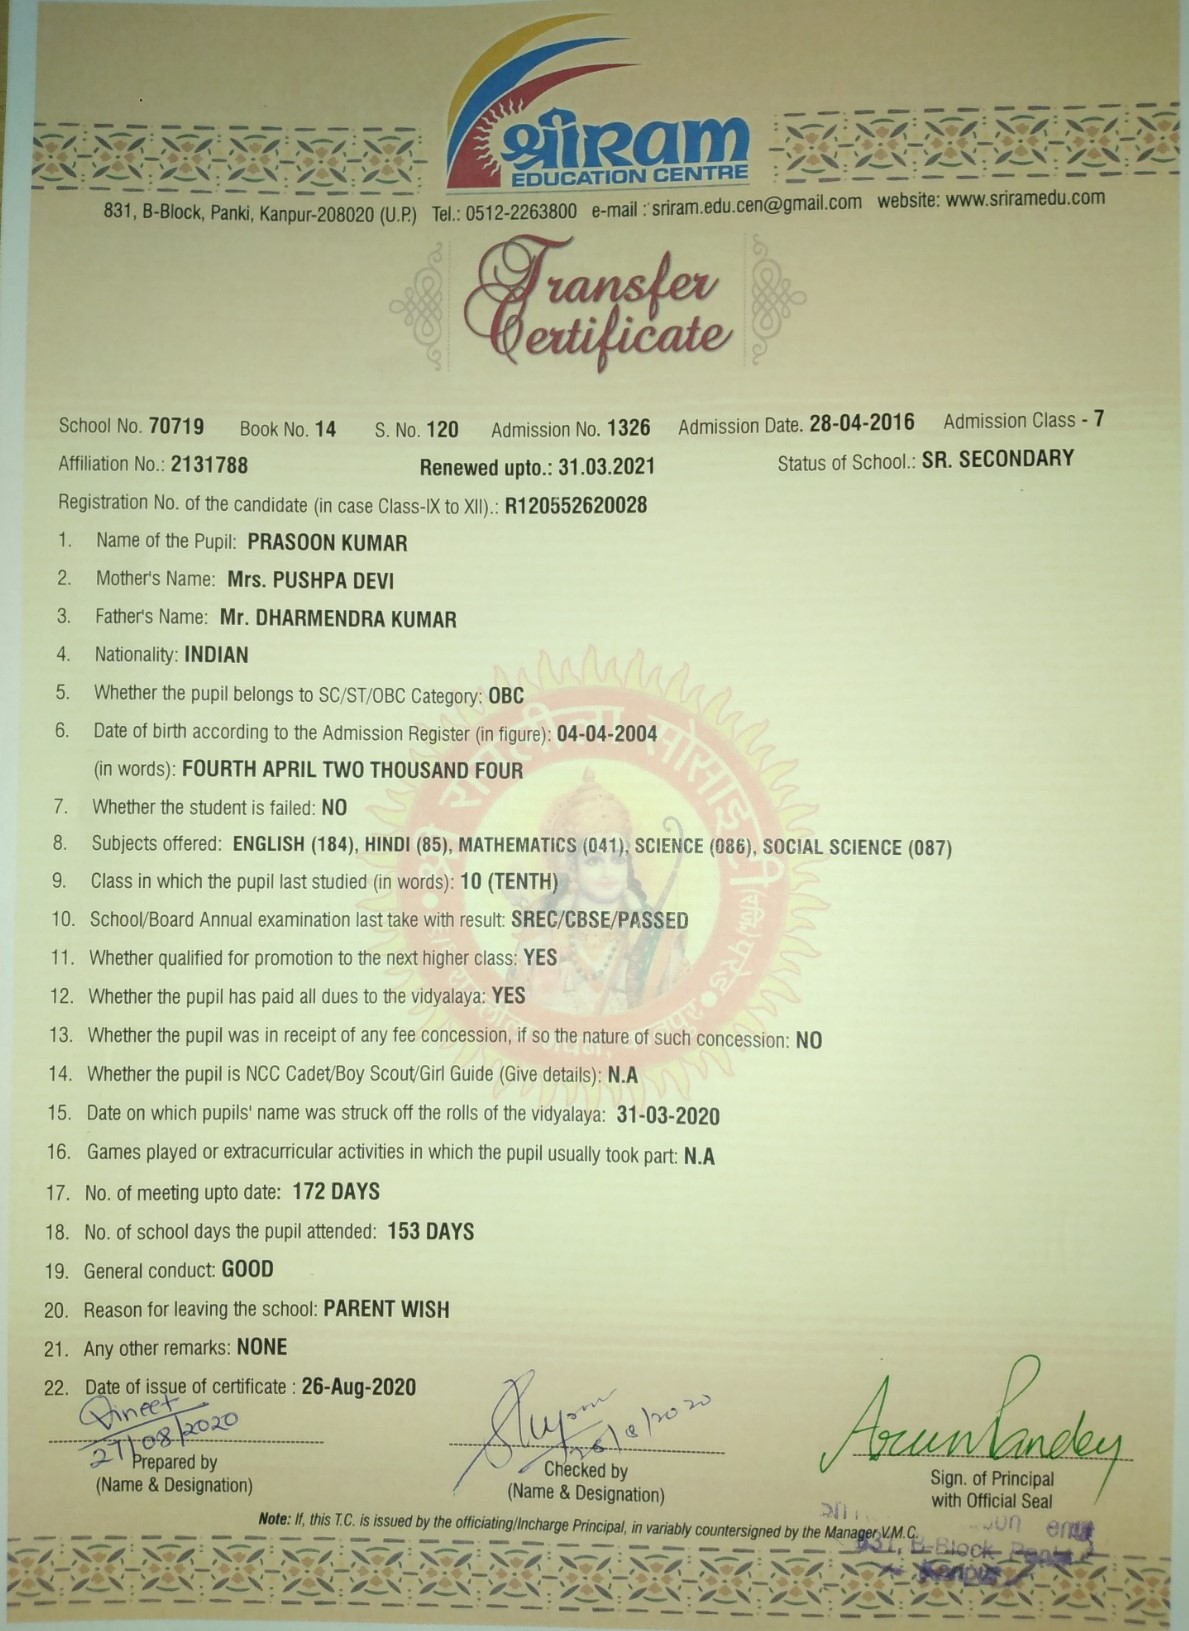 श्रीRam
EDUCATION CENTRE
831, B-Block, Panki, Kanpur-208020 (U.P.) Tel.: 0512-2263800 e-mail : sriram.edu.cen@gmail.com website: www.sriramedu.com
Transfer
Certificate
School No. 70719 Book No. 14 S. No. 120 Admission No. 1326 Admission Date. 28-04-2016 Admission Class - 7
Affiliation No.: 2131788 Renewed upto.: 31.03.2021 Status of School.: SR. SECONDARY
Registration No. of the candidate (in case Class-IX to XII).: R120552620028
1. Name of the Pupil: PRASOON KUMAR
2. Mother's Name: Mrs. PUSHPA DEVI
3. Father's Name: Mr. DHARMENDRA KUMAR
4. Nationality: INDIAN
5. Whether the pupil belongs to SC/ST/OBC Category: OBC
6. Date of birth according to the Admission Register (in figure): 04-04-2004
(in words): FOURTH APRIL TWO THOUSAND FOUR
7. Whether the student is failed: NO
8. Subjects offered: ENGLISH (184), HINDI (85), MATHEMATICS (041), SCIENCE (086), SOCIAL SCIENCE (087)
9. Class in which the pupil last studied (in words): 10 (TENTH)
10. School/Board Annual examination last take with result: SREC/CBSE/PASSED
11. Whether qualified for promotion to the next higher class: YES
12. Whether the pupil has paid all dues to the vidyalaya: YES
13. Whether the pupil was in receipt of any fee concession, if so the nature of such concession: NO
14. Whether the pupil is NCC Cadet/Boy Scout/Girl Guide (Give details): N.A
15. Date on which pupils' name was struck off the rolls of the vidyalaya: 31-03-2020
16. Games played or extracurricular activities in which the pupil usually took part: N.A
17. No. of meeting upto date: 172 DAYS
18. No. of school days the pupil attended: 153 DAYS
19. General conduct: GOOD
20. Reason for leaving the school: PARENT WISH
21. Any other remarks: NONE
22. Date of issue of certificate : 26-Aug-2020
Vineet
27/08/2020
Arun Pandey
Prepared by
(Name & Designation)
Checked by
(Name & Designation)
Sign. of Principal
with Official Seal
Note: If, this T.C. is issued by the officiating/Incharge Principal, in variably countersigned by the Manager V.M.C.
831, B-Block
श्री रामलीला सोसाइटी